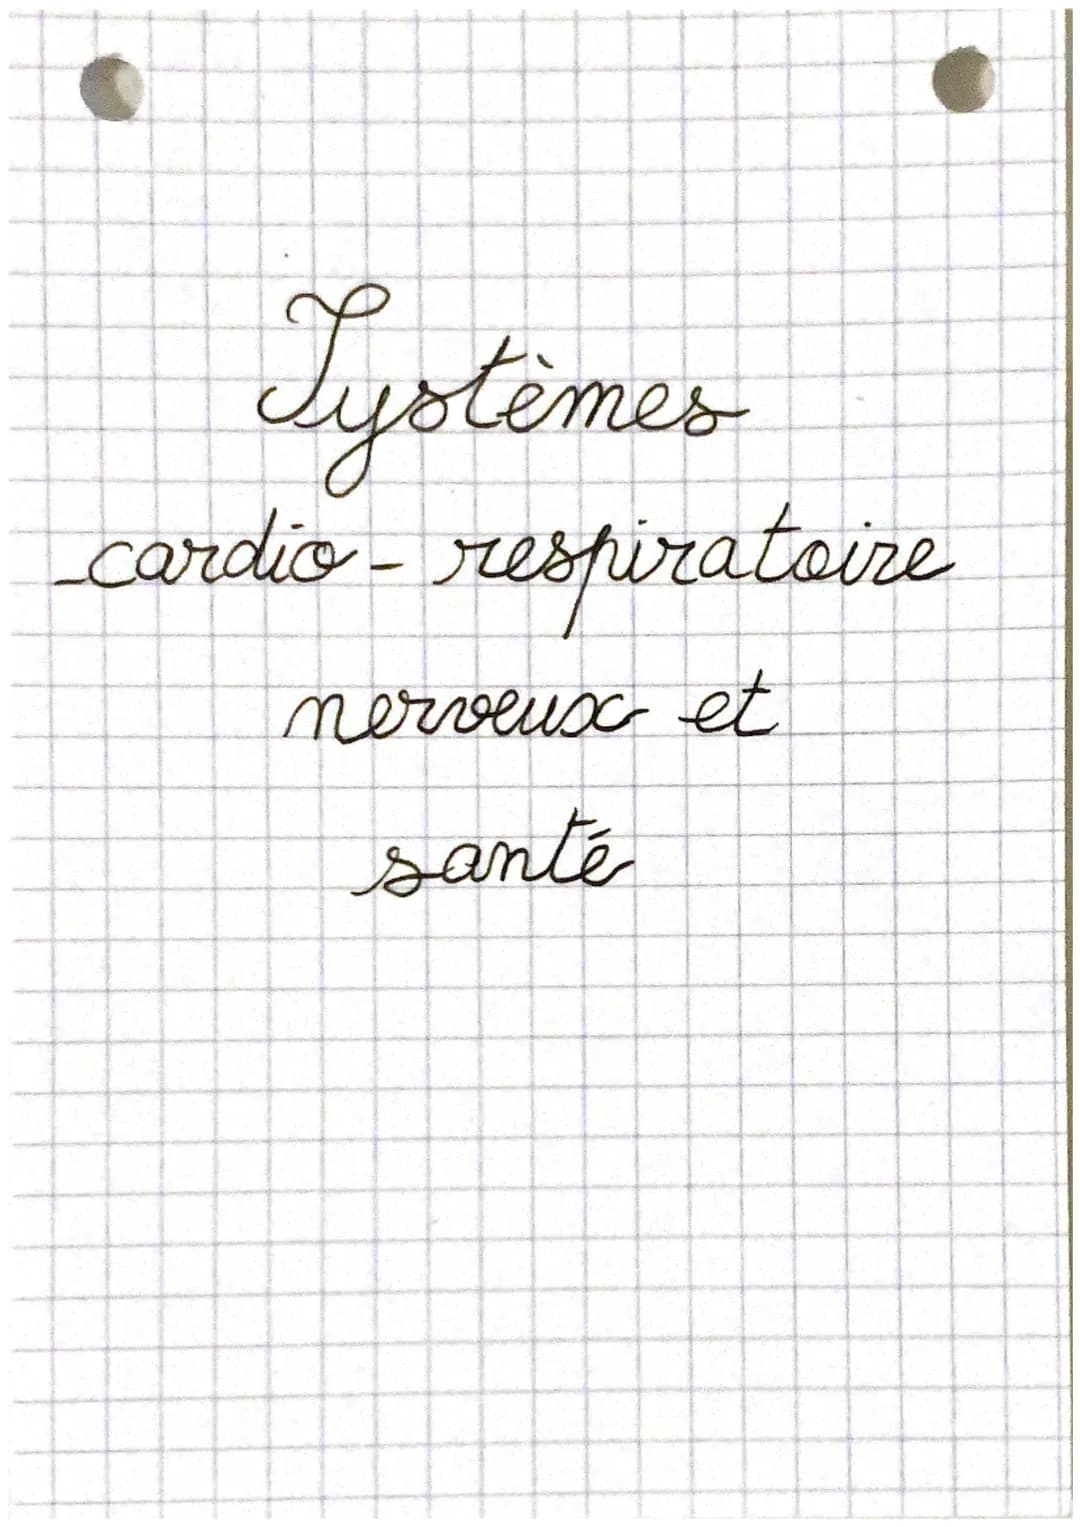 Systèmes
cardio-respiratoire
nerveux et
santé